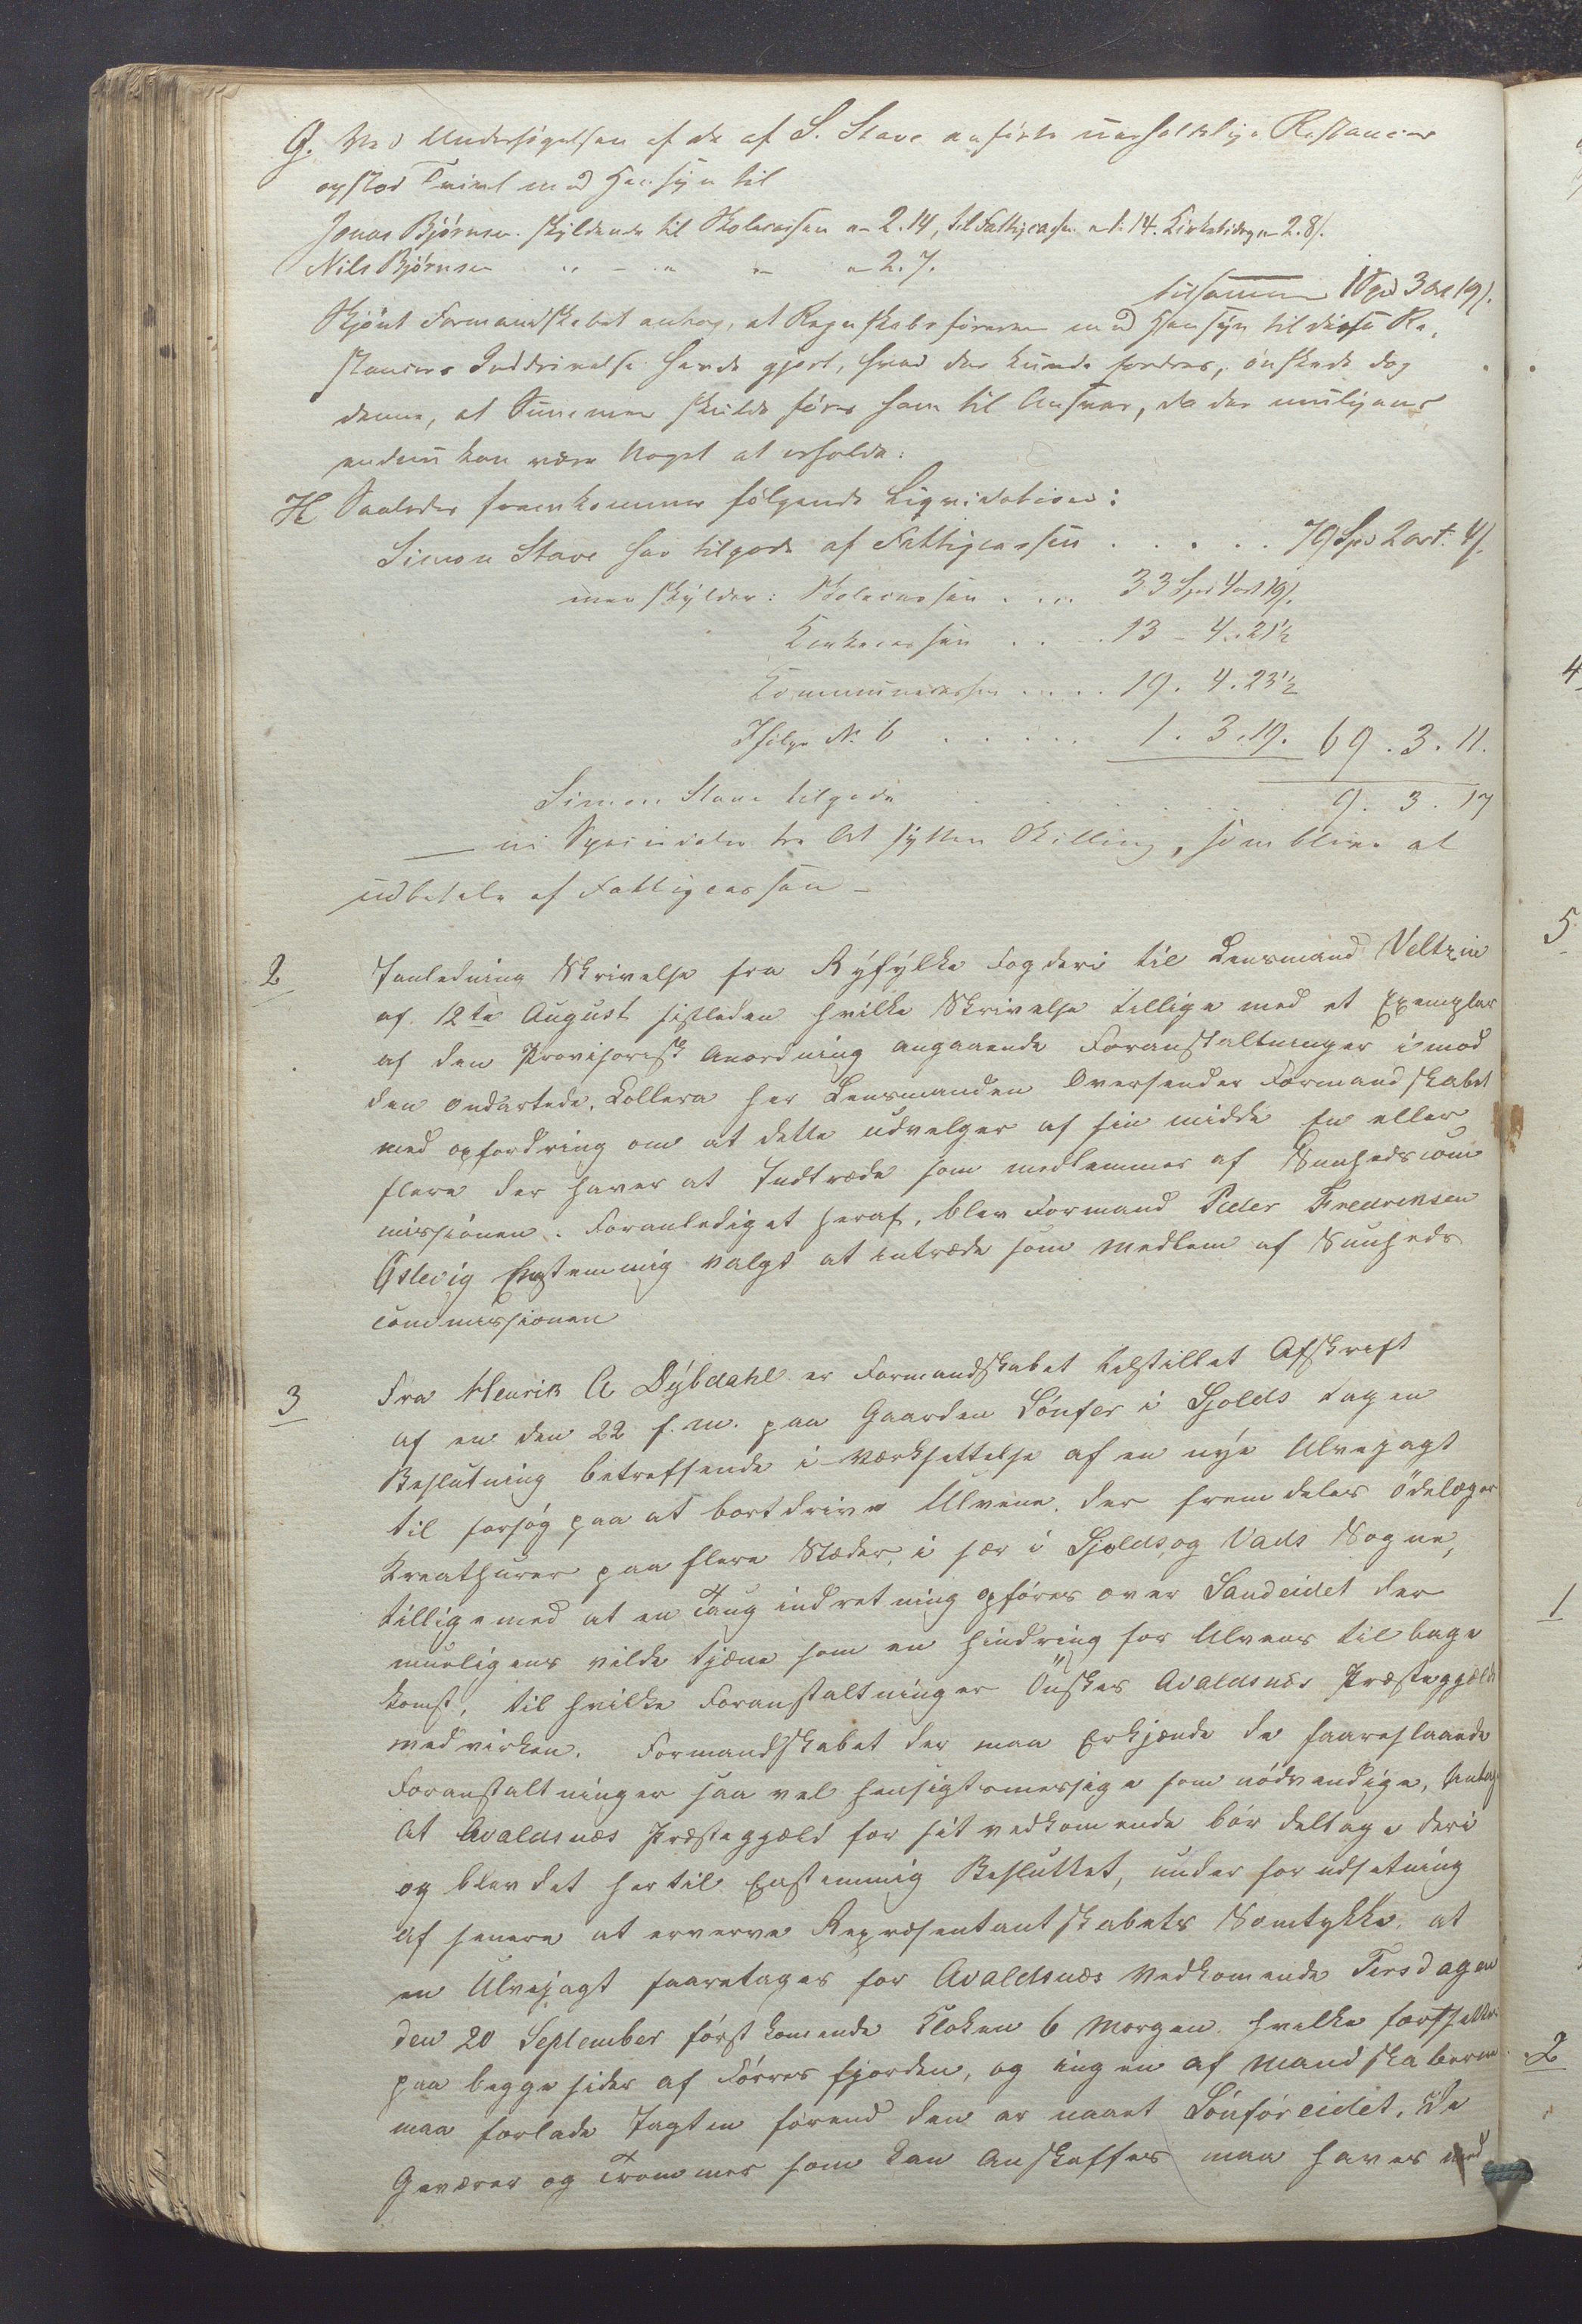 G. Ved Undersøgelsen af de af S. Stave anførte uerholdelige Restancer
opstod Tvivl med Hensyn til
Jonas Bjørnsen. skyldende til Skolecassen 2.14, til Fattigcassen 1.14. Kirkebidrag 2.8 s.
Nils Bjørnsen " - " " 2.7.
tilsammen 1 Spd 3 ort 19 s.
Skjønt Formandskabet antog, at Regnskabsføreren med Hensyn til disse Re-
stancers Inddrivelse havde gjort, hvad der kunde fordres, ønskede dog
denne, at Summen skulde føres ham til Ansvar, da der muligens
endnu kan være Noget at erholde.
H Saaledes fremkommer følgende Liqvidation:
Simon Stave har tilgode af Fattigcassen . . . . . 79 Spd 2 ort. 4 s.
men skylder: Skolecassen . . . . 33 Spd 4 ort 19 s.
Kirkecassen . . . 13 - 4. 21½
Kommunecassen . . . . 19. 4. 23½
Ifølge No 6 . . . . . 1. 3. 19. 69. 3. 11.
Simon Stave tilgode . . . . . . 9. 3. 17
ni Speciedaler tre Ort sytten Skilling, som bliver at
udbetale af Fattigcassen -
2 I anledning Skrivelse fra Ryfylke Fogderi til Lensmand Veltzin
af 12te August sistleden hvilke Skrivelse tillige med et Exemplar
af den Provisorisk Anordning angaaende Foranstaltninger imod
den ondartede Collera her Lensmanden Oversender Formandskabet
med opfordring om at dette udvelger af sin midde En eller
flere der haver at Indtræde som medlemmer af Sunhedscom
missionen. Foranlediget heraf, blev Formand Peder Fredriksen
Gislevig Enstemmig valgt at intræde som Medlem af Sunheds
commissionen
3 Fra Henrik A Dybdahl er Formandskabet tilstillet Afskrift
af en den 22 f. m. paa Gaarden Lønfer i Sjolds tagen
Beslutning betreffende i Værksettelse af en nye Ulvejagt
til forsøg paa at bortdrive Ulvene, der fremdeles ödelæger
Kreathurer paa flere Stæder, i sær i Sjolds og Vads Sogne,
tilligemed at en Taug indretning opføres over Sandeidet der
muligens vilde tjene som en hindring for Ulvens tilbage
komst, til hvilke Foranstaltninger Önskes Avaldsnæs Præstegjælds
medvirken. Formandskabet der maa Erkjænde de foreslaaede
Foranstaltninger saa vel hensigtsmessige som nødvendige, Antog
At Avaldsnæs Præstegjæld for sit vedkomende bør deltage deri
og blev det hertil Enstemmig Besluttet, under forudsetning
af senere at erverve Repræsentantskabets Samtykke, at
en Ulvejagt foretages for Avaldsnæs Vedkomende Tirsdagen
den 20 September først komende Kloken 6 Morgen. hvilke fortsettes
paa begge sider af Førres fjorden, og ingen af Mandskaberne
maa forlade Jagten førend den er naaet Lønføreidet. De
Geværer og Trommer som kan Anskaffes maa haves med